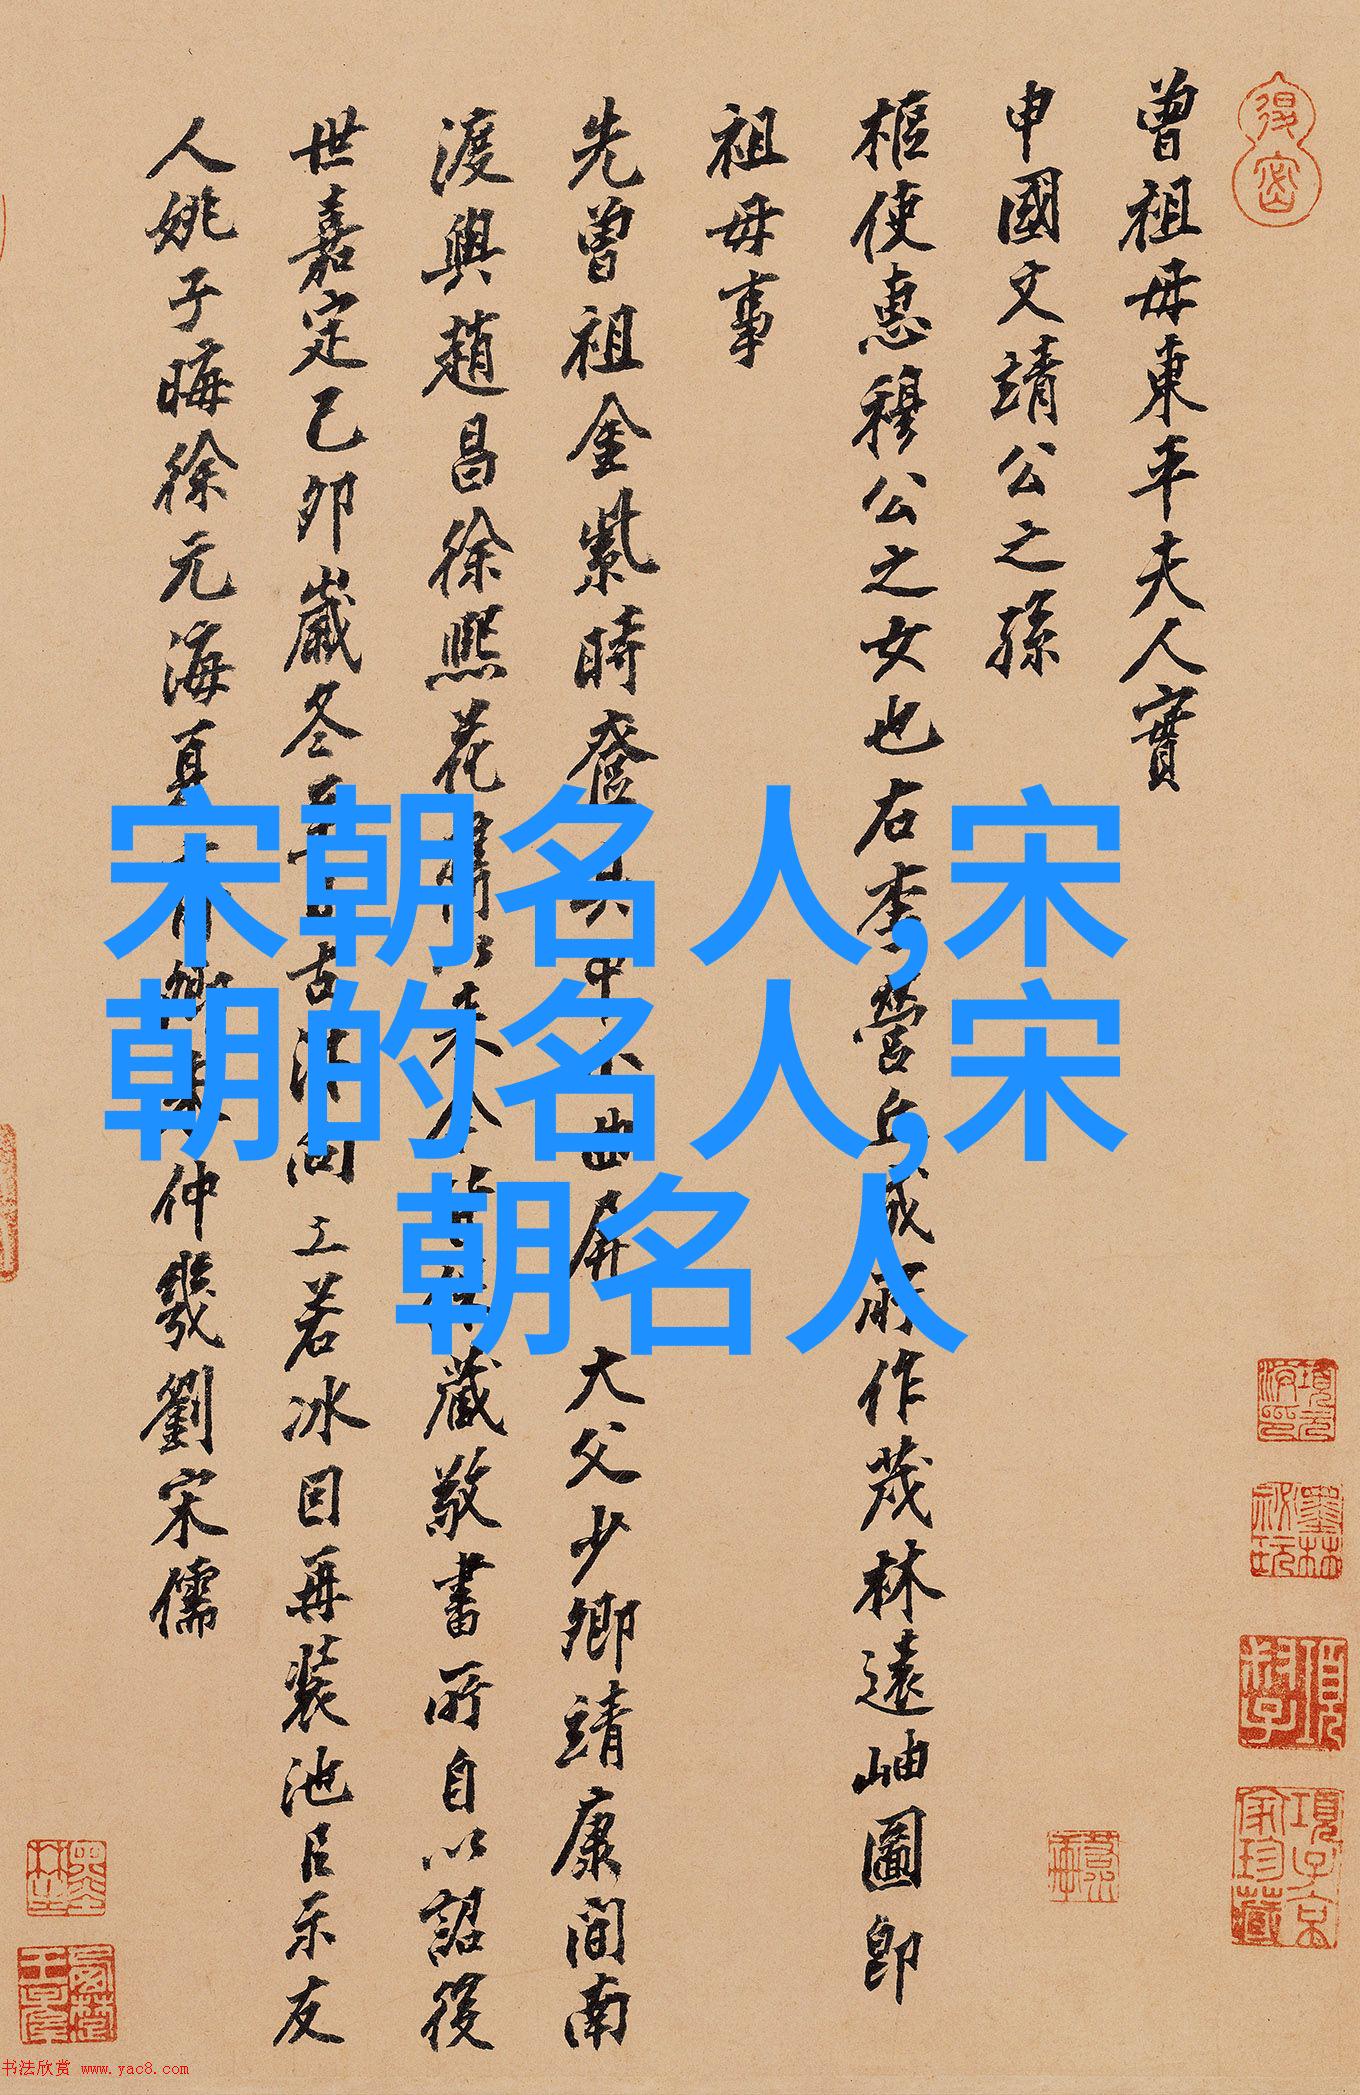 曾祖母東平夫人實
申國文靖公之孫
樞使惠穆公之女也右李營丘成所作茂林遠岫圖即
祖母事
先曾祖金紫時奩具中曲屏大父少卿靖康間南
渡與趙昌徐熙花藏敬書所自以詔後
世嘉定己卯歲冬至古汴向工若冰因再裝池呂示友
人姚子晦徐元海真仲幾劉宋儒
宋朝名人,宋
朝的名人,宋
朝名人
書法欣赏 www.yac8.com